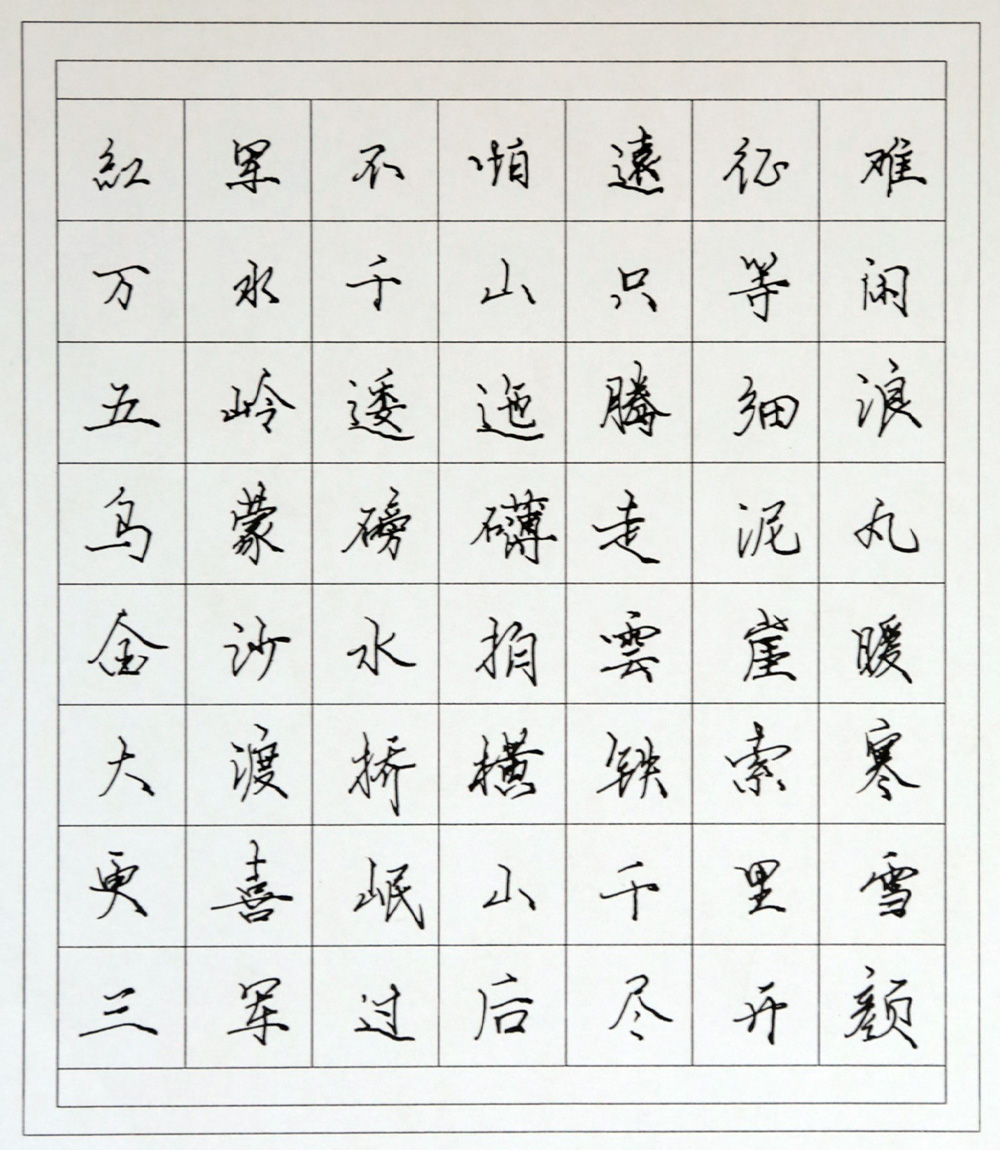 紅军不怕遠征难
万水千山只等闲
五岭逶迤腾细浪
乌蒙磅礴走泥丸
金沙水拍雲崖暖
大渡桥横铁索寒
更喜岷山千里雪
三军过后尽开颜